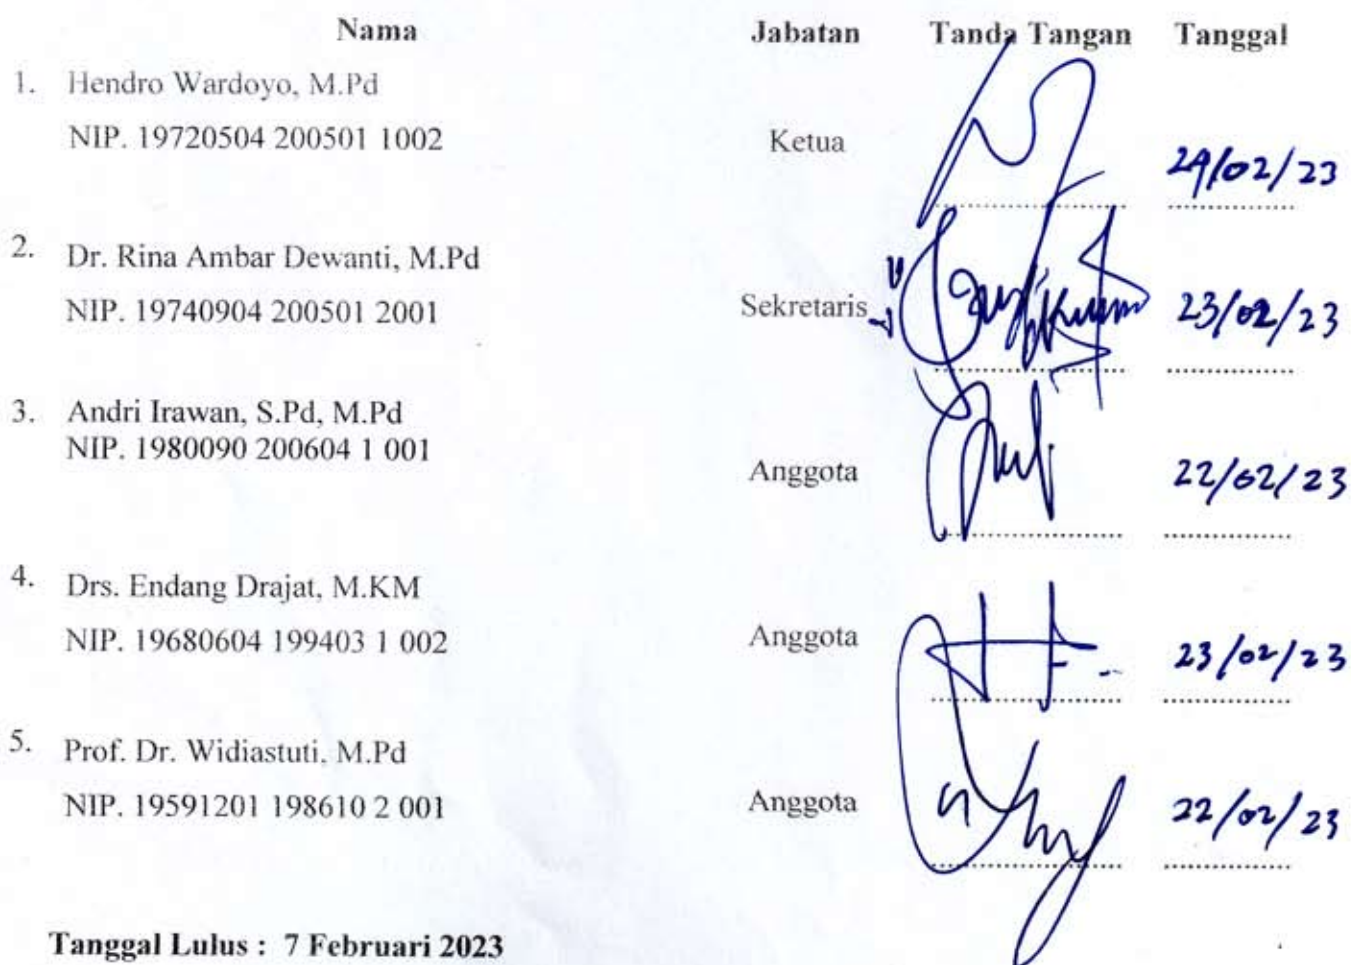 Nama Jabatan Tanda Tangan Tanggal
1. Hendro Wardoyo, M.Pd
NIP. 19720504 200501 1002 Ketua 24/02/23
2. Dr. Rina Ambar Dewanti, M.Pd
NIP. 19740904 200501 2001 Sekretaris 23/02/23
3. Andri Irawan, S.Pd, M.Pd
NIP. 1980090 200604 1 001 Anggota 22/02/23
4. Drs. Endang Drajat, M.KM
NIP. 19680604 199403 1 002 Anggota 23/02/23
5. Prof. Dr. Widiastuti, M.Pd
NIP. 19591201 198610 2 001 Anggota 22/02/23
Tanggal Lulus : 7 Februari 2023